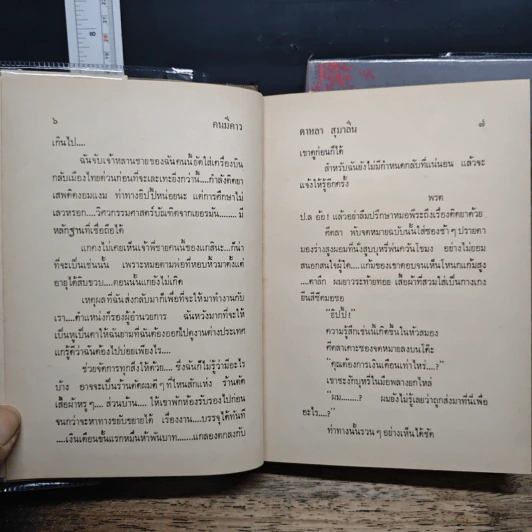 ๖ คนมีคาว
เกินไป....
ฉันจับเจ้าหลานชายของฉันคนนี้ยัดใส่เครื่องบิน
กลับเมืองไทยด่วนก่อนที่จะเละเทะยิ่งกว่านี้....กำลังติดยา
เสพติดงอมแงม ท่าทางฮิปปี้หน่อยนะ แต่การศึกษาไม่
เลวหรอก....วิศวกรรมศาสตร์บัณฑิตจากเยอรมัน........ มี
หลักฐานที่เชื่อถือได้
แกคงไม่เคยเห็นเจ้าพี่ชายคนนี้ของแกสินะ....ก็น่า
ที่จะเป็นเช่นนั้น เพราะหมอตามพ่อที่หอบหิ้วมาตั้งแต่
อายุได้สิบขวบ....ตอนนั้นแกยังไม่เกิด
เหตุผลที่ฉันส่งกลับมาก็เพื่อที่จะให้มาทำงานกับ
เรา....ตำแหน่งก็รองผู้อำนวยการ ฉันหวังมากที่จะให้
เป็นหูเป็นตาให้ฉันยามที่ฉันต้องออกไปดูงานต่างประเทศ
แกรู้ดีว่าฉันต้องไปบ่อยเพียงไร....
ช่วยจัดการทุกสิ่งให้ด้วย.... ซึ่งฉันก็ไม่รู้ว่ามีอะไร
บ้าง อาจจะเป็นร้านตัดผมดี ๆ ที่ไหนสักแห่ง ร้านตัด
เสื้อผ้าหรู ๆ.... ส่วนบ้าน..... ให้เขาพักห้องรับรองไปก่อน
จนกว่าจะหาทางขยับขยายได้ เรื่องงาน....บรรจุได้ทันที
....เงินเดือนขั้นแรกหมื่นห้าพันบาท........แกลองตกลงกับ
ดาหลา สุมาลิน ๗
เขาดูก่อนก็ได้
สำหรับฉันยังไม่มีกำหนดกลับที่แน่นอน แล้วจะ
แจ้งให้รู้อีกครั้ง
พรต
ป.ล อ้อ! แล้วอย่าลืมปรึกษาหมอพีระถึงเรื่องติดยาด้วย
คีตลา พับจดหมายฉบับนั้นใส่ซองช้า ๆ ปรายตา
มองร่างสูงผอมที่นั่งสูบบุหรี่พ่นควันโขมง อย่างไม่ยอม
สนอกสนใจผู้ใด....แก้มของเขาตอบจนเห็นโหนกแก้มสูง
....ตาลึก ผมยาวระท้ายทอย เสื้อผ้าที่สวมใส่เป็นกางเกง
ยีนสีซีดมอซอ
“ฮิปปี้!”
ความรู้สึกเช่นนี้เกิดขึ้นในหัวสมอง
คีตลาเคาะซองจดหมายลงบนโต๊ะ
“คุณต้องการเงินเดือนเท่าไหร่....?”
เขาชะงักบุหรี่ในมือพลางยกไหล่
“ผม........? ผมยังไม่รู้เลยว่าถูกส่งมาที่นี่เพื่อ
อะไร....?”
ท่าทางนั้นรวน ๆ อย่างเห็นได้ชัด